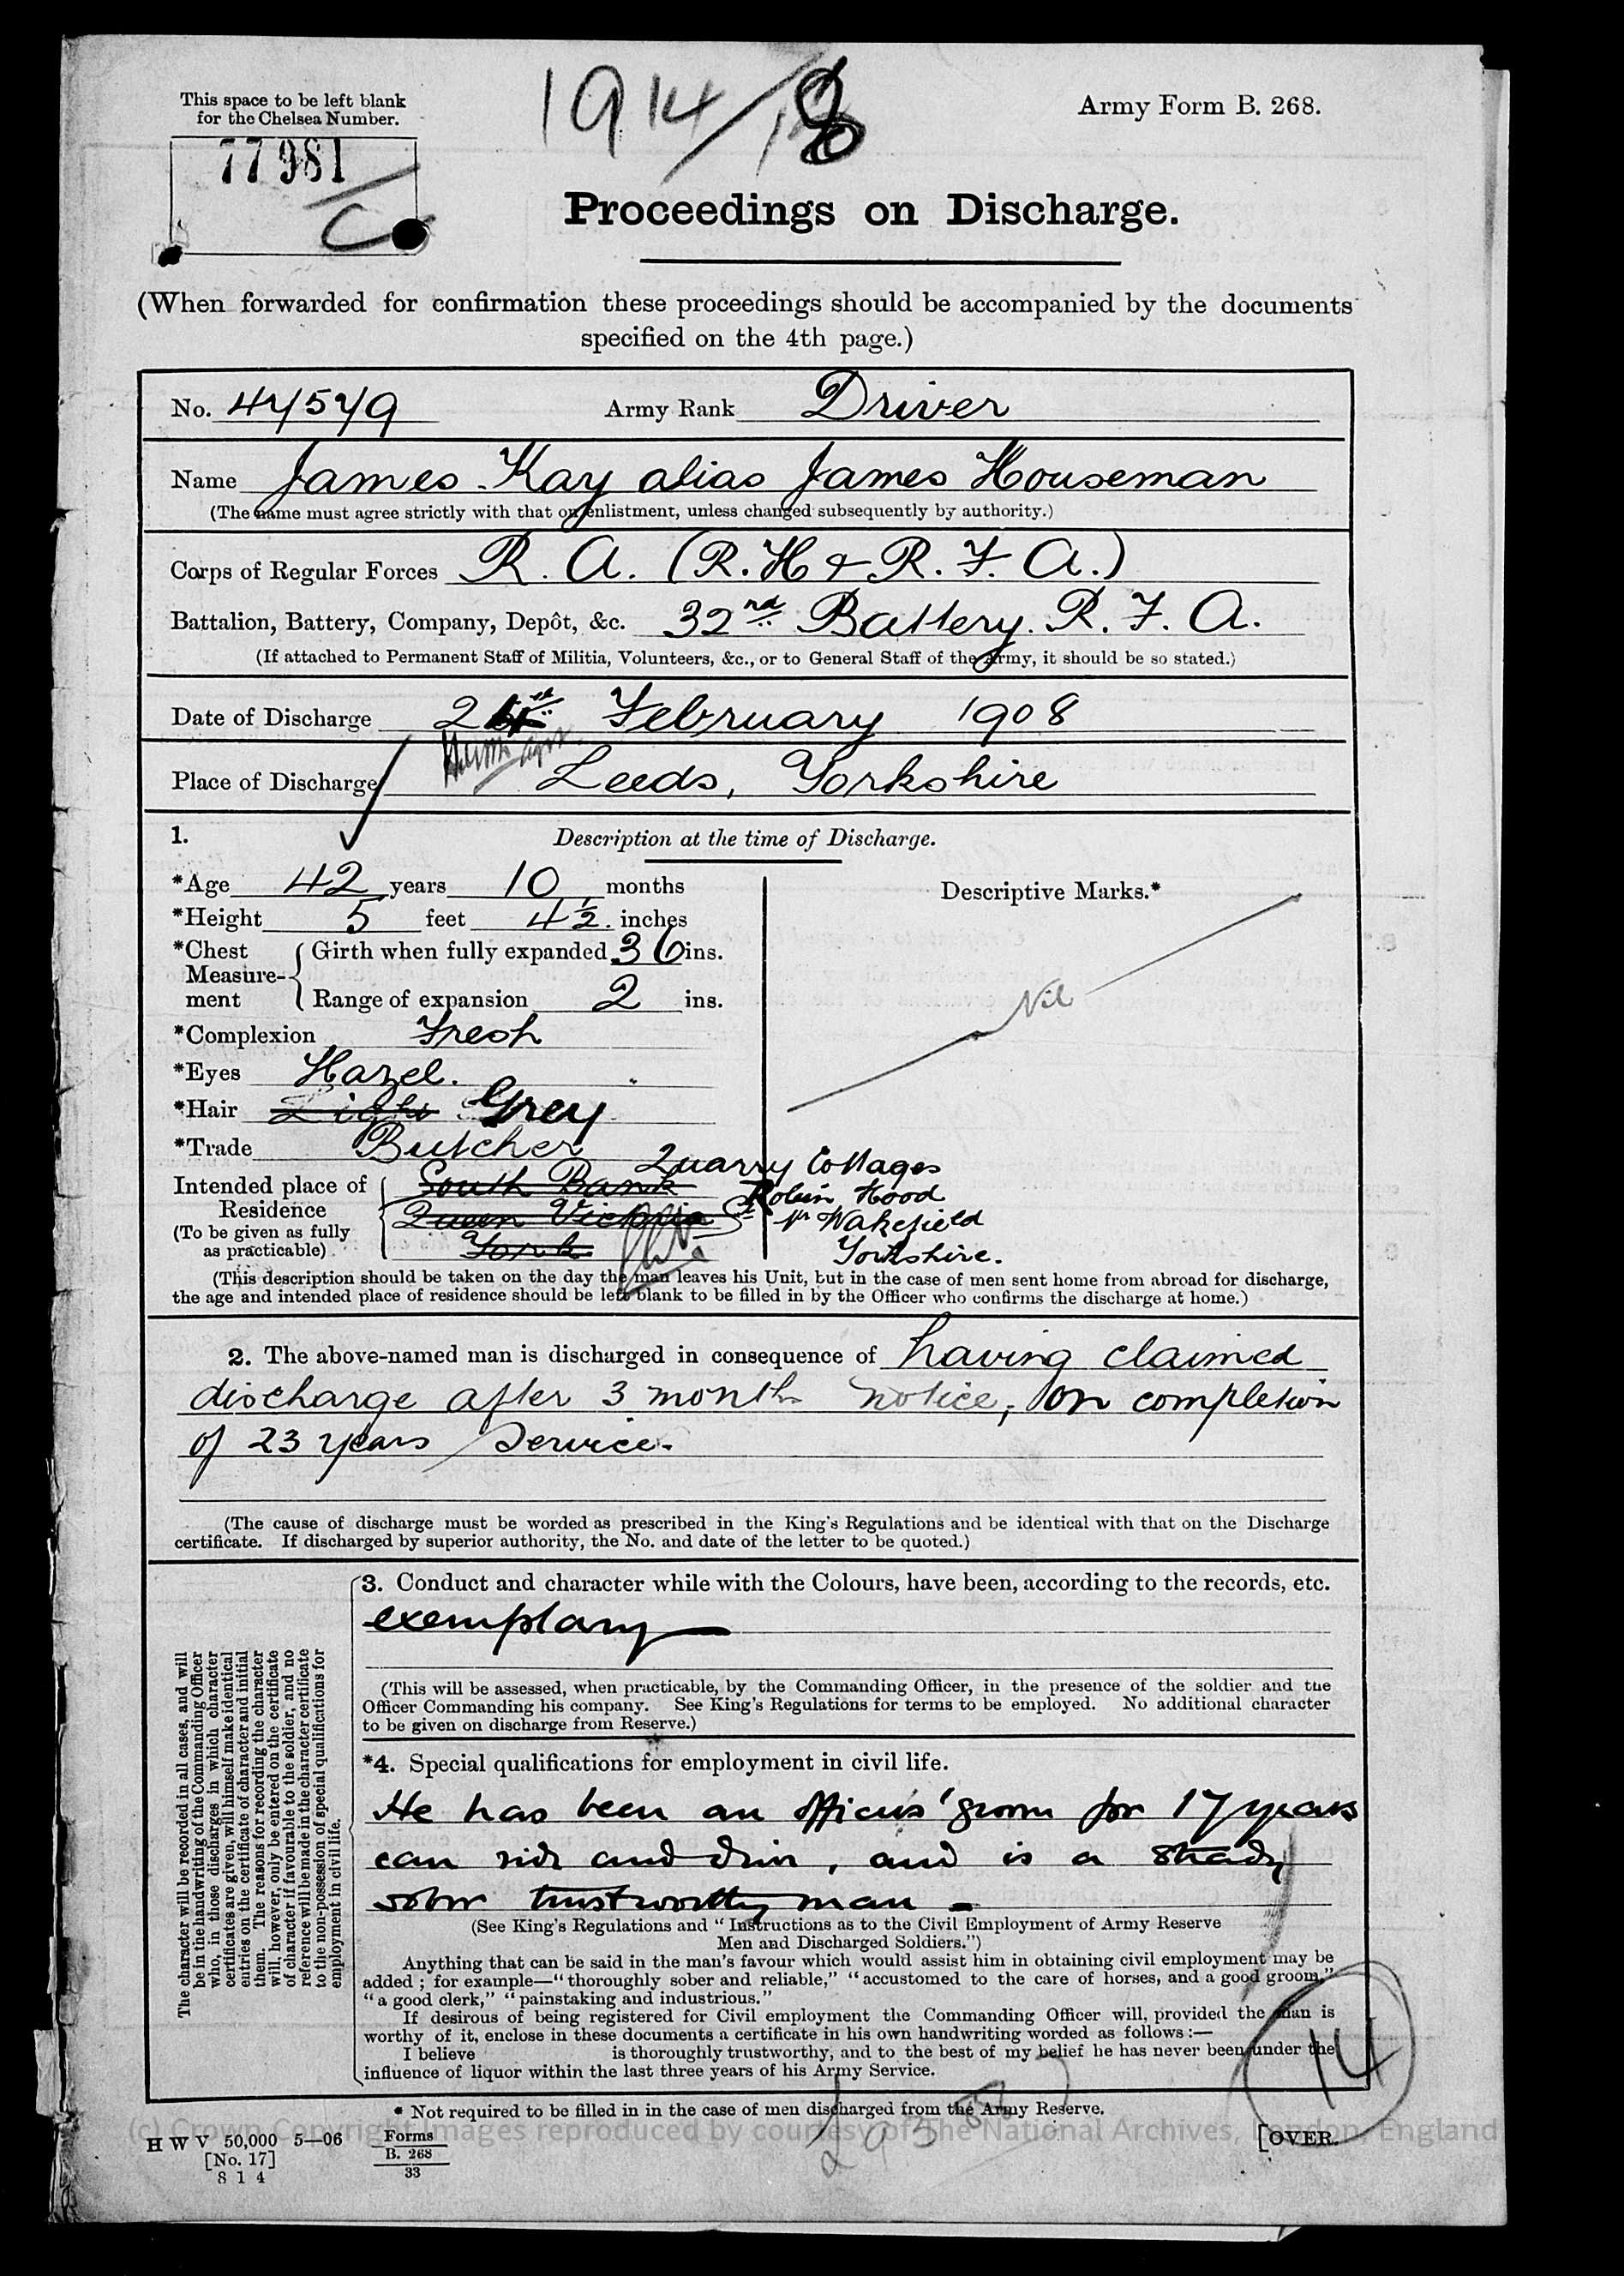 This space to be left blank
for the Chelsea Number.
77981
C
1914/
Army Form B. 268.
Proceedings on Discharge.
(When forwarded for confirmation these proceedings should be accompanied by the documents
specified on the 4th page.)
No. 44549 Army Rank Driver
Name James Kay alias James Houseman
(The name must agree strictly with that on enlistment, unless changed subsequently by authority.)
Corps of Regular Forces R. A. (R.H & R. F. A.)
Battalion, Battery, Company, Depôt, &c. 32nd Battery. R. F. A.
(If attached to Permanent Staff of Militia, Volunteers, &c., or to General Staff of the Army, it should be so stated.)
Date of Discharge February 1908
Place of Discharge Leeds, Yorkshire
1. Description at the time of Discharge.
*Age 42 years 10 months
Descriptive Marks.*
*Height 5 feet 4½ inches
*Chest Measurement { Girth when fully expanded 36 ins.
Range of expansion 2 ins.
Nil
*Complexion Fresh
*Eyes Hazel.
*Hair Light Grey
*Trade Butcher
Intended place of Residence
(To be given as fully as practicable)
South Bank
Queen Victoria St
York
Quarry Cottages
Robin Hood
Nr Wakefield
Yorkshire.
(This description should be taken on the day the man leaves his Unit, but in the case of men sent home from abroad for discharge,
the age and intended place of residence should be left blank to be filled in by the Officer who confirms the discharge at home.)
2. The above-named man is discharged in consequence of having claimed
discharge after 3 months notice, on completion
of 23 years service.
(The cause of discharge must be worded as prescribed in the King's Regulations and be identical with that on the Discharge
certificate. If discharged by superior authority, the No. and date of the letter to be quoted.)
The character will be recorded in all cases, and will
be in the handwriting of the Commanding Officer
who, in those discharges in which character
certificates are given, will himself make identical
entries on the certificate of character and initial
them. The reasons for recording the character
will, however, only be entered on the certificate
of character if favourable to the soldier, and no
reference will be made in the character certificate
to the non-possession of special qualifications for
employment in civil life.
3. Conduct and character while with the Colours, have been, according to the records, etc.
exemplary
(This will be assessed, when practicable, by the Commanding Officer, in the presence of the soldier and the
Officer Commanding his company. See King's Regulations for terms to be employed. No additional character
to be given on discharge from Reserve.)
*4. Special qualifications for employment in civil life.
He has been an officers' groom for 17 years
can ride and drive, and is a steady
sober trustworthy man -
(See King's Regulations and "Instructions as to the Civil Employment of Army Reserve
Men and Discharged Soldiers.")
Anything that can be said in the man's favour which would assist him in obtaining civil employment may be
added; for example—"thoroughly sober and reliable," "accustomed to the care of horses, and a good groom,"
"a good clerk," "painstaking and industrious."
If desirous of being registered for Civil employment the Commanding Officer will, provided the man is
worthy of it, enclose in these documents a certificate in his own handwriting worded as follows:—
I believe is thoroughly trustworthy, and to the best of my belief he has never been under the
influence of liquor within the last three years of his Army Service.
14
* Not required to be filled in in the case of men discharged from the Army Reserve.
(c) Crown Copyright Images reproduced by courtesy of The National Archives, London, England
H W V 50,000 5—06
[No. 17]
8 1 4
Forms
B. 268
33
[OVER.